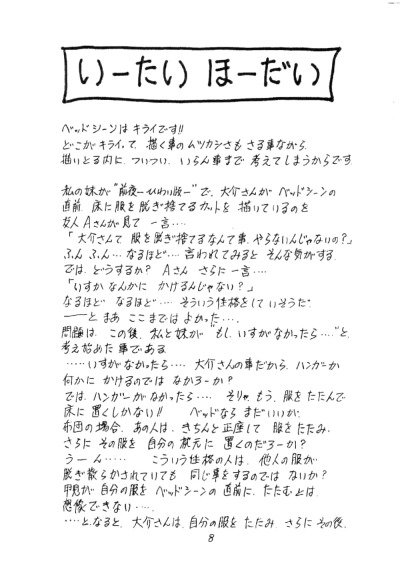 いーたい ほーだい
ベッドシーンは キライです!!
どこがキライって、描く事の ムツカシさも さる事ながら、
描いとる内に、ついつい、いらん事まで 考えてしまうからです
私の妹が"前夜ーひわい版ー"で、大介さんが ベッドシーンの
直前、床に服を脱ぎ捨てるカットを 描いているのを
友人Aさんが見て 一言‥‥
「大介さんて 服を脱ぎ捨てるなんて事、やらないんじゃないの?」
ふん ふん…なるほど‥‥言われてみると そんな気がする。
では、どうするか? Aさん さらに一言‥‥
「いすか なんかに かけるんじゃない?」
なるほど なるほど‥‥ そういう性格をしていそうだ。
――と まあ ここまでは よかった‥‥。
問題は、この後、私と妹が"もし、いすがなかったら‥‥"と、
考え始めた事である
‥‥‥いすがなかったら‥‥ 大介さんの事だから、ハンガーか
何かに かけるのでは なかろーか?
では、ハンガーがなかったら‥‥ そりゃ、もう、服をたたんで
床に 置くしかない!! ベッドなら まだいいが、
布団の場合、あの人は、きちんと正座して 服をたたみ、
さらに その服を 自分の枕元に 置くのだろーか?
うーん‥‥‥ こういう性格の人は、他人の服が
脱ぎ散らかされていても 同じ事をするのでは ないか?
甲児が 自分の服を ベッドシーンの 直前に、たたむとは、
想像できない‥‥。
‥‥と、なると、大介さんは、自分の服を たたみ、さらに その後、
8